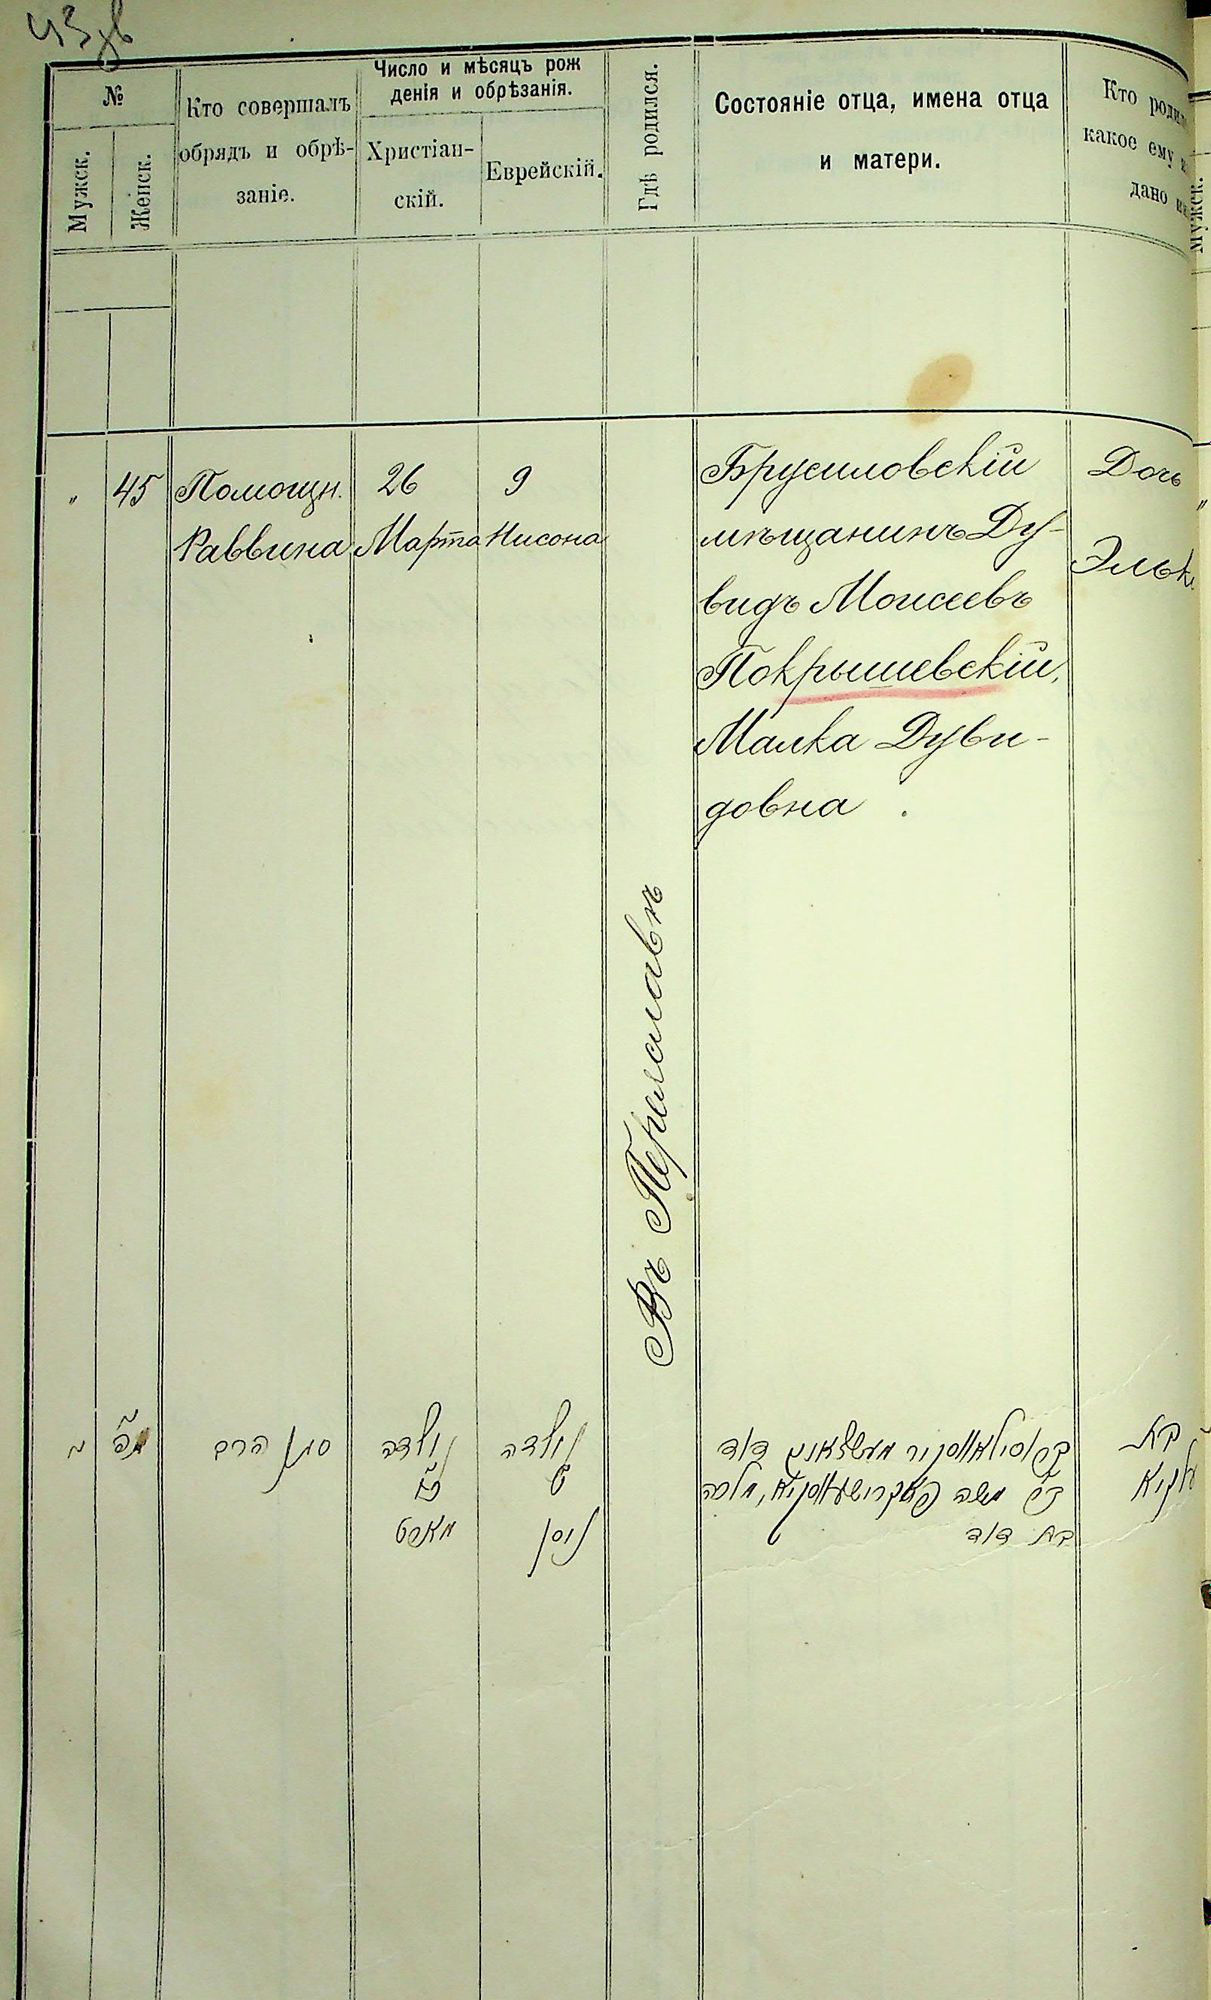 43 зв
№
Мужск.
Женск.
Кто совершалъ
обрядъ и обрѣ-
заніе.
Число и мѣсяцъ рож
денія и обрѣзанія.
Христіан-
скій.
Еврейскій.
Гдѣ родился.
Состояніе отца, имена отца
и матери.
Кто
какое ему
дано
Мужск.
„ 45
Помощн.
Раввина
26
Марта
9
Нисона
Въ Переяславѣ
Брусиловскій
мѣщанинъ Ду-
видъ Моисеевъ
Покрышевскій,
Малка Дуви-
довна .
Дочь
סגן הרב
נולדה
מארט
נולדה
ט
ניסן
דוד
משה
מלכה
בת דוד
בת